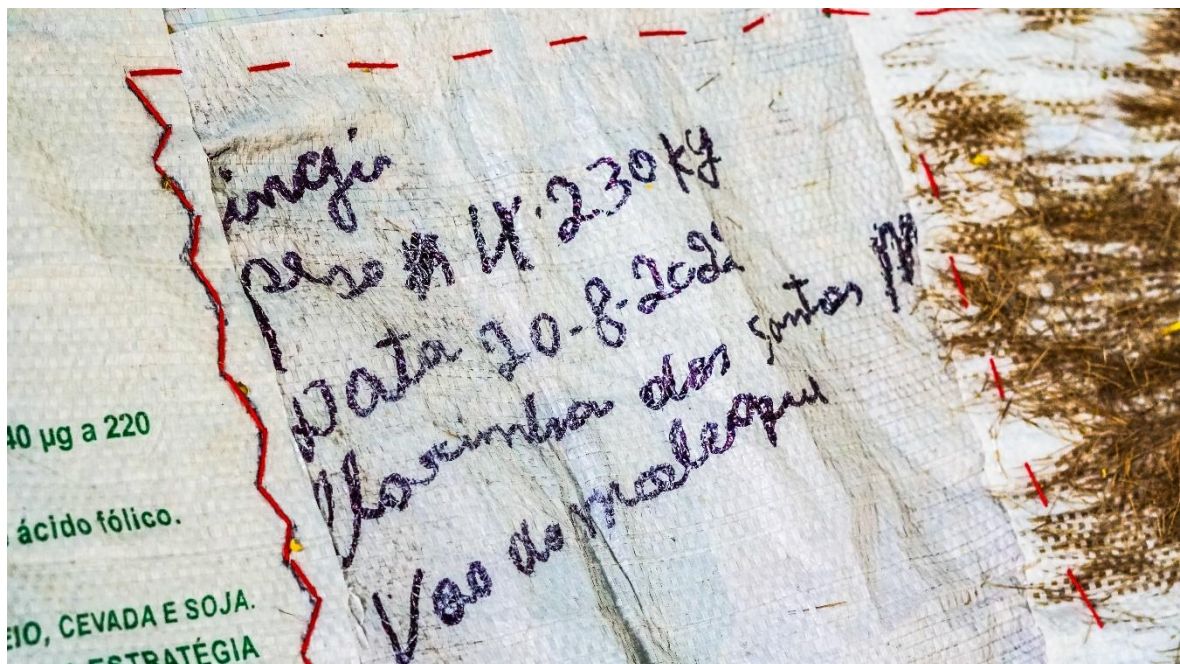 peso 4.230 kg
Data 20-8-202
dos santos
Vao do moleque
40 µg a 220
ácido fólico.
EIO, CEVADA E SOJA.
ESTRATÉGIA